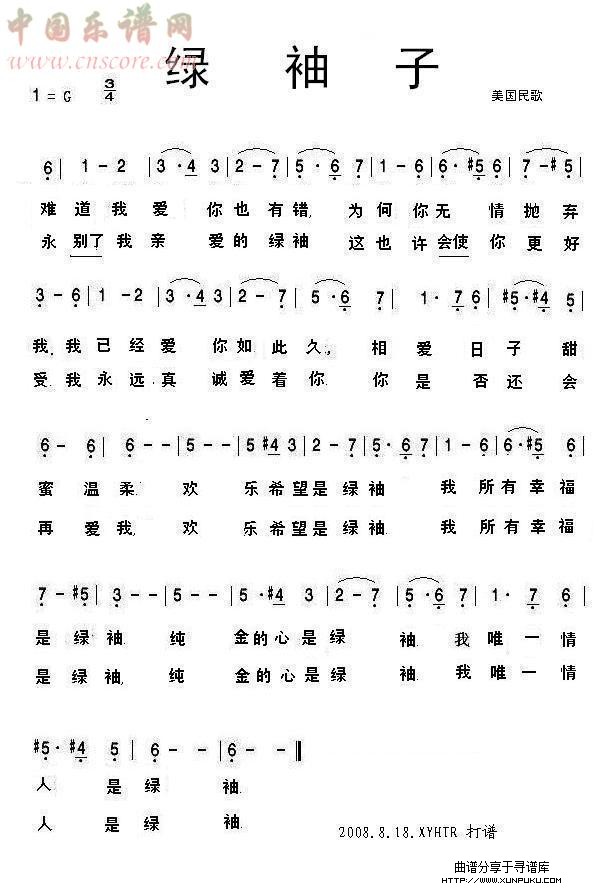 中国乐谱网
www.cnscore.com
绿 袖 子
1 = G 3/4
美国民歌
6 | 1 - 2 | 3 · 4 3 | 2 - 7 | 5 · 6 7 | 1 - 6 | 6 · #5 6 | 7 - #5 |
难 道 我 爱 你 也 有 错, 为 何 你 无 情 抛 弃
永 别了 我 亲 爱 的 绿 袖 这 也 许 会使 你 更 好
3 - 6 | 1 - 2 | 3 · 4 3 | 2 - 7 | 5 · 6 7 | 1 · 7 6 | #5 · #4 5 |
我, 我 已 经 爱 你 如 此 久, 相 爱 日 子 甜
受, 我 永 远 真 诚 爱 着 你. 你 是 否 还 会
6 - 6 | 6 - - | 5 - - | 5 #4 3 | 2 - 7 | 5 · 6 7 | 1 - 6 | 6 · #5 6 |
蜜 温 柔. 欢 乐 希 望 是 绿 袖 我 所 有 幸 福
再 爱 我, 欢 乐 希 望 是 绿 袖. 我 所 有 幸 福
7 - #5 | 3 - - | 5 - - | 5 · #4 3 | 2 - 7 | 5 · 6 7 | 1 · 7 6 |
是 绿 袖. 纯 金 的 心 是 绿 袖. 我 唯 一 情
是 绿 袖, 纯 金 的 心 是 绿 袖. 我 唯 一 情
#5 · #4 5 | 6 - - | 6 - ‖
人 是 绿 袖.
人 是 绿 袖.
2008.8.18.XYHTR 打谱
曲谱分享于寻谱库
HTTP://WWW.XUNPUKU.COM